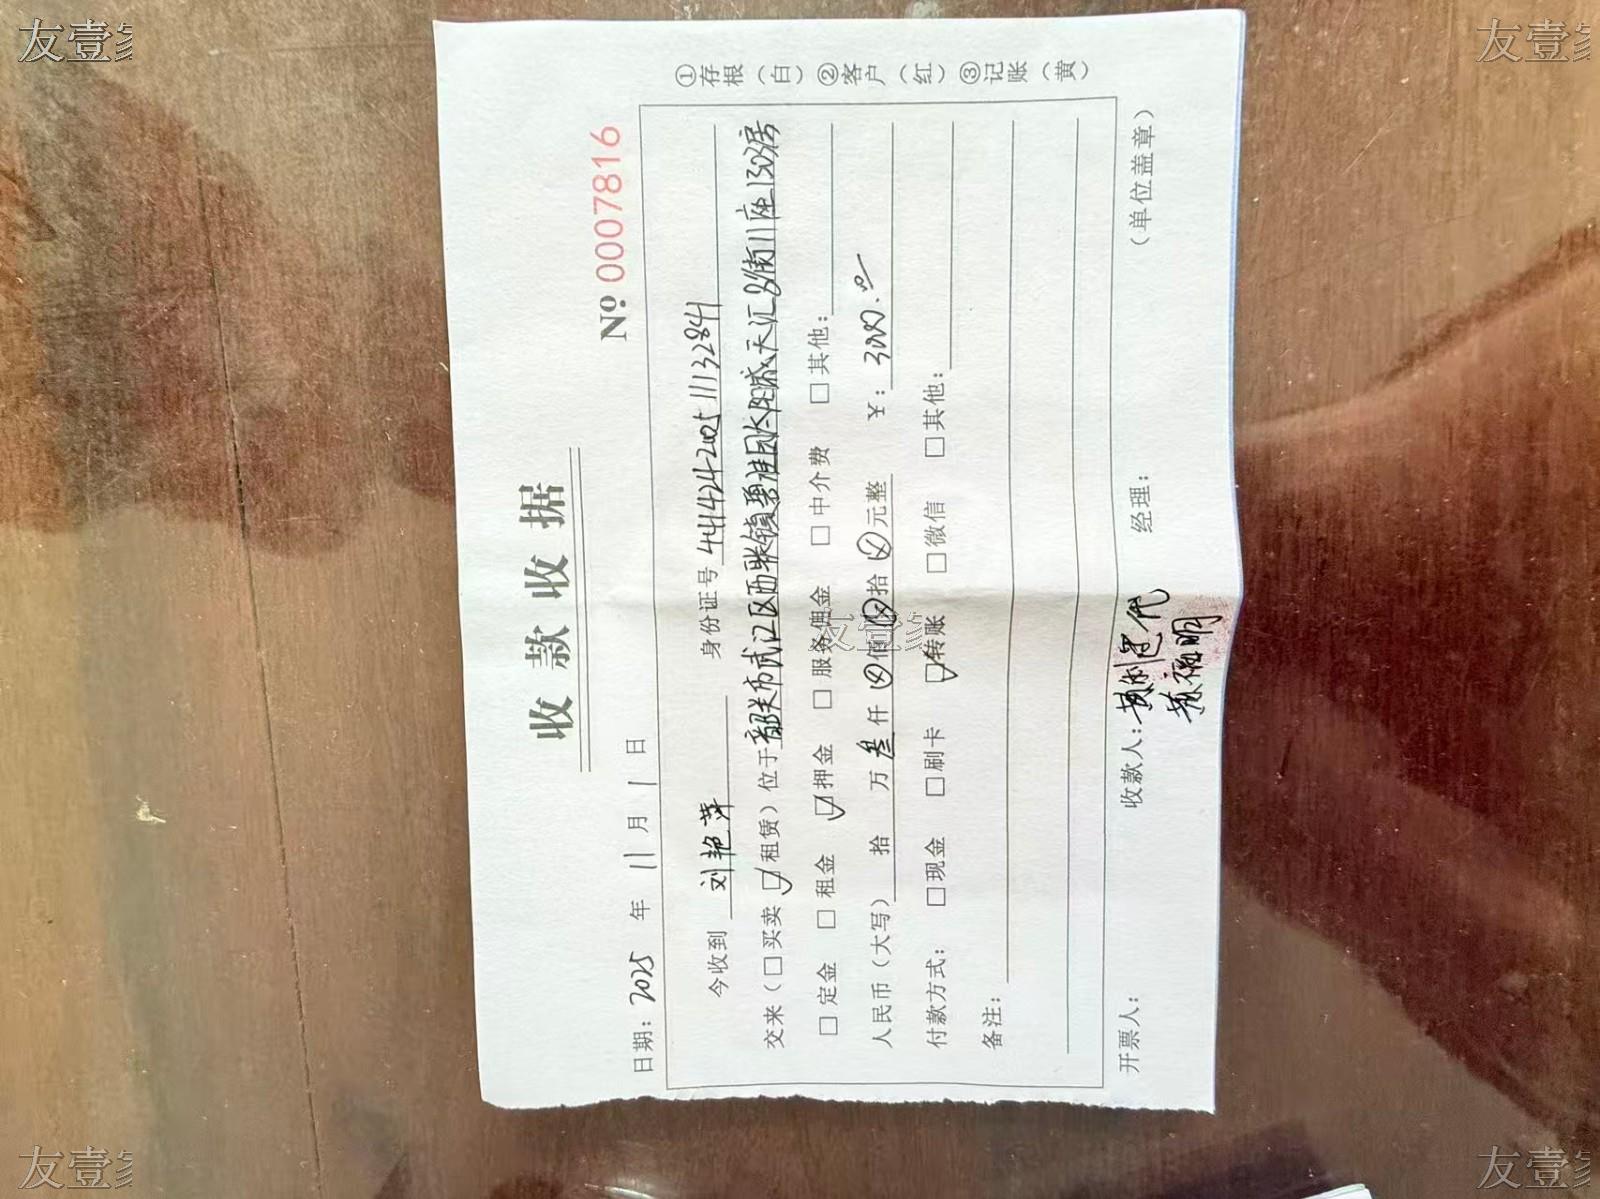 收款收据
№ 0007816
日期：2025 年 11 月 1 日
今收到 刘艳萍 身份证号 441424202511132841
交来（□买卖 ☑租赁）位于韶关市武江区西联镇碧桂园太阳城天汇8街11座1303房
□定金 □租金 ☑押金 □服务佣金 □中介费 □其他：
人民币（大写） 拾 万叁仟⊗佰⊗拾⊗元整 ￥：3000.00
付款方式：□现金 □刷卡 ☑转账 □微信 □其他：
备注：
开票人： 收款人： 代 经理： （单位盖章）
福明
①存根（白）②客户（红）③记账（黄）
友壹家
友壹家
友壹家
友壹家
友壹家